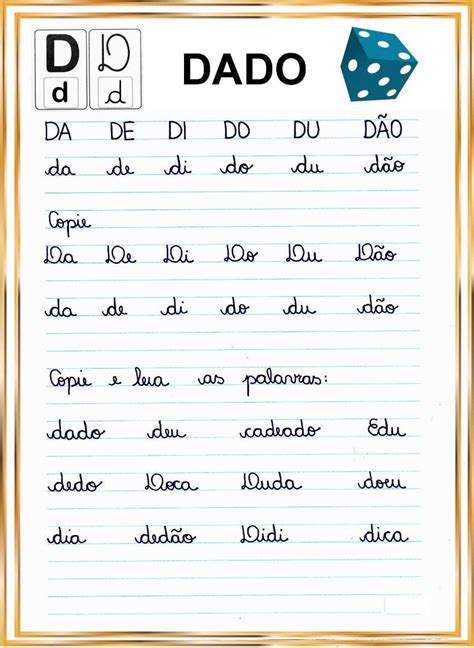 D D DADO
d d
DA DE DI DO DU DÃO
da de di do du dão
Copie
Da De Di Do Du Dão
da de di do du dão
Copie e leia as palavras:
dado deu cadeado Edu
dedo Doca Duda doeu
dia dedão Didi dica